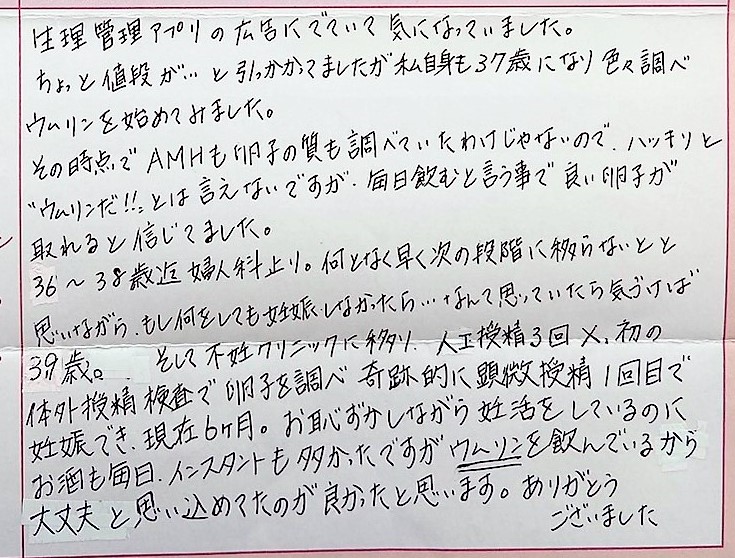 生理管理アプリの広告にでていて気になっていました。
ちょっと値段が…と引っかかってましたが私自身も37歳になり色々調べ
ウムリンを始めてみました。
その時点でAMHも卵子の質も調べていたわけじゃないので、ハッキリと
"ウムリンだ!!"とは言えないですが、毎日飲むと言う事で良い卵子が
取れると信じてました。
36〜38歳迄婦人科止り。何となく早く次の段階に移らないとと
思いながら、もし何をしても妊娠しなかったら…なんて思っていたら気づけば
39歳。 そして不妊クリニックに移り、人工授精3回×、初の
体外授精検査で卵子を調べ奇跡的に顕微授精1回目で
妊娠でき、現在6ヶ月。お恥ずかしながら妊活をしているのに
お酒も毎日、インスタントも多かったですがウムリンを飲んでいるから
大丈夫と思い込めてたのが良かったと思います。ありがとう
ございました